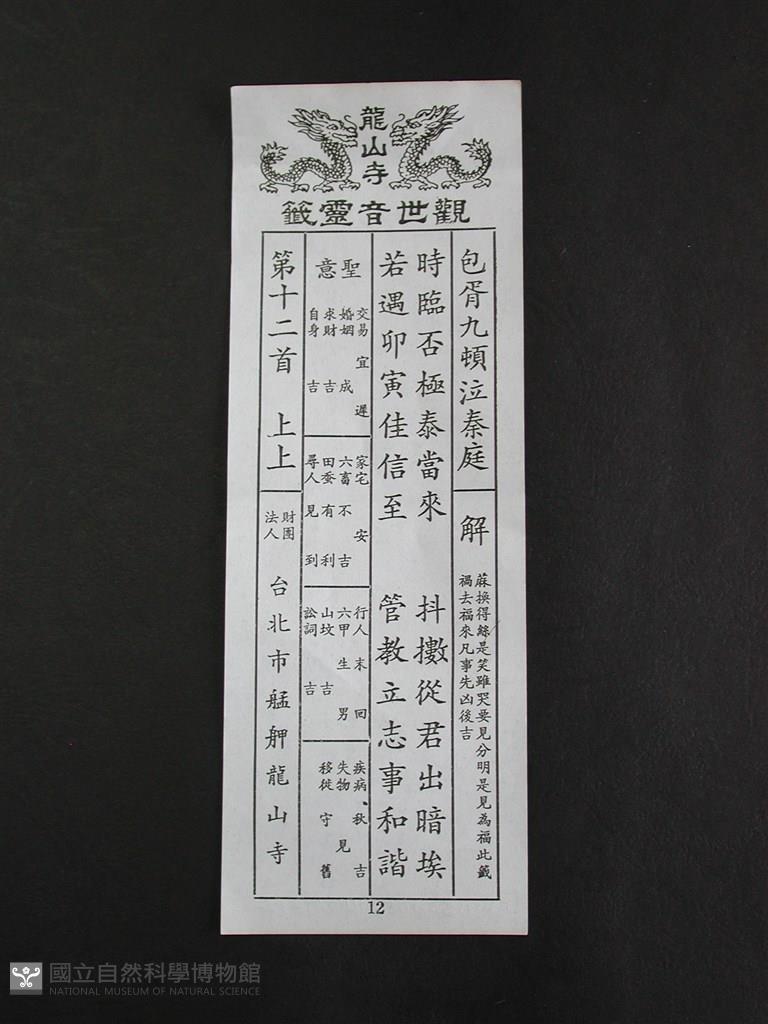 龍山寺
觀世音靈籤
包胥九頓泣秦庭
解
蔴換得絲是笑雖哭要見分明是見為福此籤
禍去福來凡事先凶後吉
時臨否極泰當來　抖擻從君出暗埃
若遇卯寅佳信至　管教立志事和諧
聖意
交易　宜　遲
婚姻　成
求財　吉
自身　吉
家宅　安
六畜　不　吉
田蚕　有　利
尋人　見　到
行人　末　回
六甲　生　男
山坟　吉
訟詞　吉
疾病、秋　吉
失物　見
移徙　守　舊
第十二首　上上
財團
法人
台北市艋舺龍山寺
12
國立自然科學博物館
NATIONAL MUSEUM OF NATURAL SCIENCE